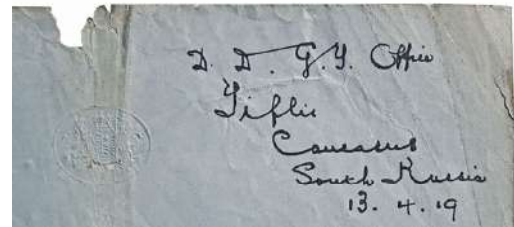 D. D. G. T. Office
Tiflis
Caucasus
South Russia
13. 4. 19